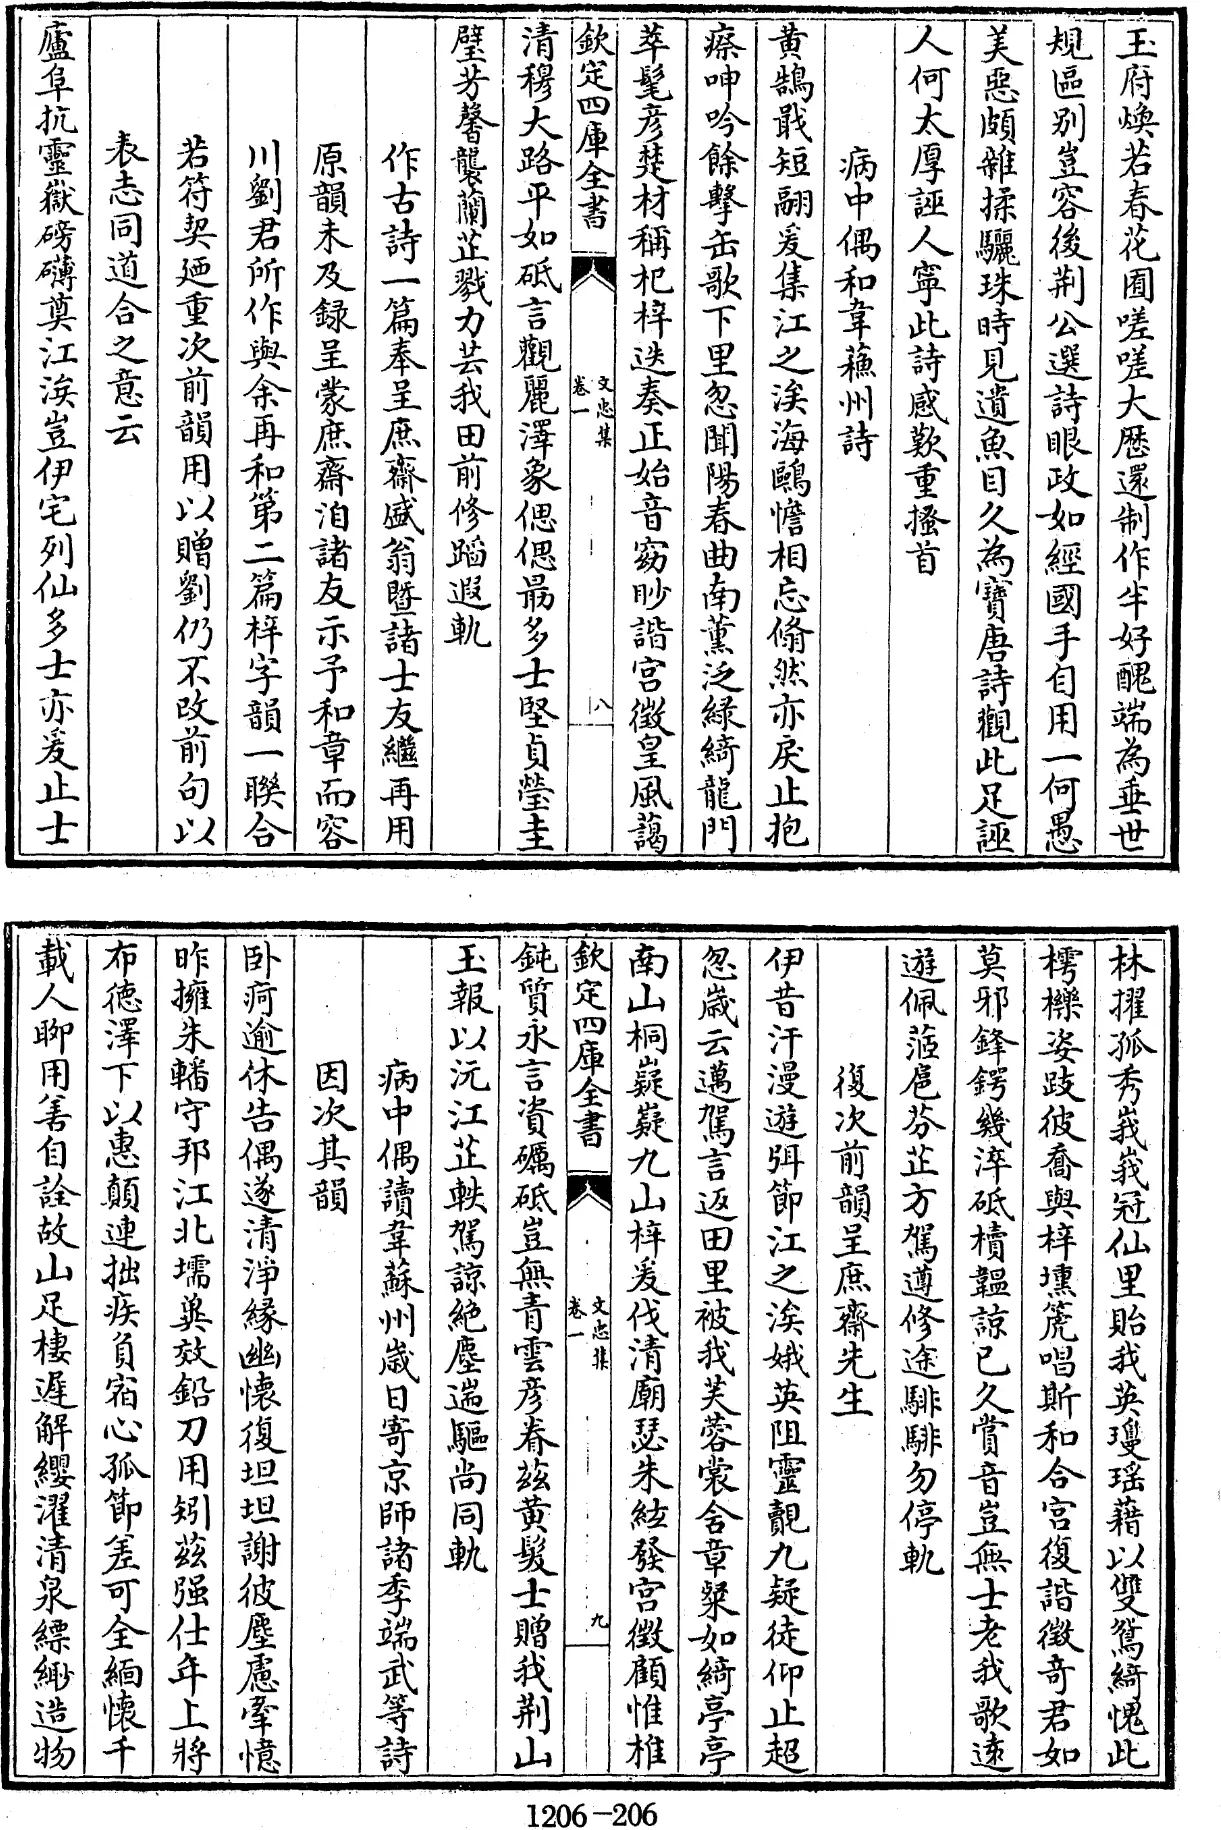 玉府煥若春花囿嗟嗟大歷還制作半好醜端為垂世
規區別豈容後荆公選詩眼政如經國手自用一何愚
美惡頗雜揉驪珠時見遺魚目久為寶唐詩觀此足誣
人何太厚誣人寧此詩感歎重搔首
病中偶和韋蘓州詩
黄鵠戢短翮爰集江之涘海鷗憺相忘翛然亦戾止抱
瘵呻吟餘擊缶歌下里忽聞陽春曲南薫泛緑綺龍門
萃髦彦楚材稱杞梓迭奏正始音窈眇諧宫徴皇風藹
欽定四庫全書
文忠集
卷一
八
清穆大路平如砥言觀麗澤象偲偲朂多士堅貞瑩圭
璧芳馨襲蘭芷戮力芸我田前修蹈遐軌
作古詩一篇奉呈庶齋盛翁暨諸士友繼再用
原韻未及録呈蒙庶齋洎諸友示予和章而容
川劉君所作與余再和第二篇梓字韻一聨合
若符契廼重次前韻用以贈劉仍不改前句以
表志同道合之意云
廬阜抗靈嶽磅礴奠江涘豈伊宅列仙多士亦爰止士
林擢孤秀峩峩冠仙里貽我英瓊瑶藉以雙鴛綺愧此
樗櫟姿跂彼喬與梓壎箎唱斯和合宫復諧徴奇君如
莫邪鋒鍔幾淬砥櫝韞諒已久賞音豈無士老我歌逺
遊佩菃扈芬芷方駕遵修途騑騑勿停軌
復次前韻呈庶齋先生
伊昔汗漫遊弭節江之涘娥英阻靈覿九疑徒仰止超
忽歲云邁駕言返田里被我芙蓉裳含章粲如綺亭亭
南山桐嶷嶷九山梓爰伐清廟瑟朱絃發宫徴顧惟椎
欽定四庫全書
文忠集
卷一
九
鈍質永言資礪砥豈無青雲彦眷兹黄髮士贈我荆山
玉報以沅江芷軼駕諒絶塵遄驅尚同軌
病中偶讀韋蘇州歲日寄京師諸季端武等詩
因次其韻
卧疴逾休告偶遂清淨緣幽懷復坦坦謝彼塵慮牽憶
昨擁朱轓守邦江北壖兾效鉛刀用矧兹强仕年上將
布德澤下以惠顛連拙疾負宿心孤節差可全緬懷千
載人聊用善自詮故山足棲遲解纓濯清泉縹緲造物
1206-206